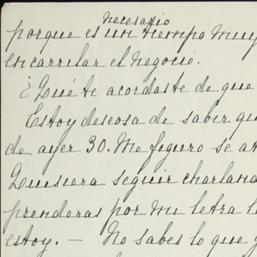 necesario
porque es un tiempo muy
encarrilar el negocio.
¿Qué te acordaste de que
Estoy deseosa de saber qu
de ayer 30. Me figuro se at
Quisiera seguir charland
prenderas por mi letra l
estoy. — No sabes lo que y